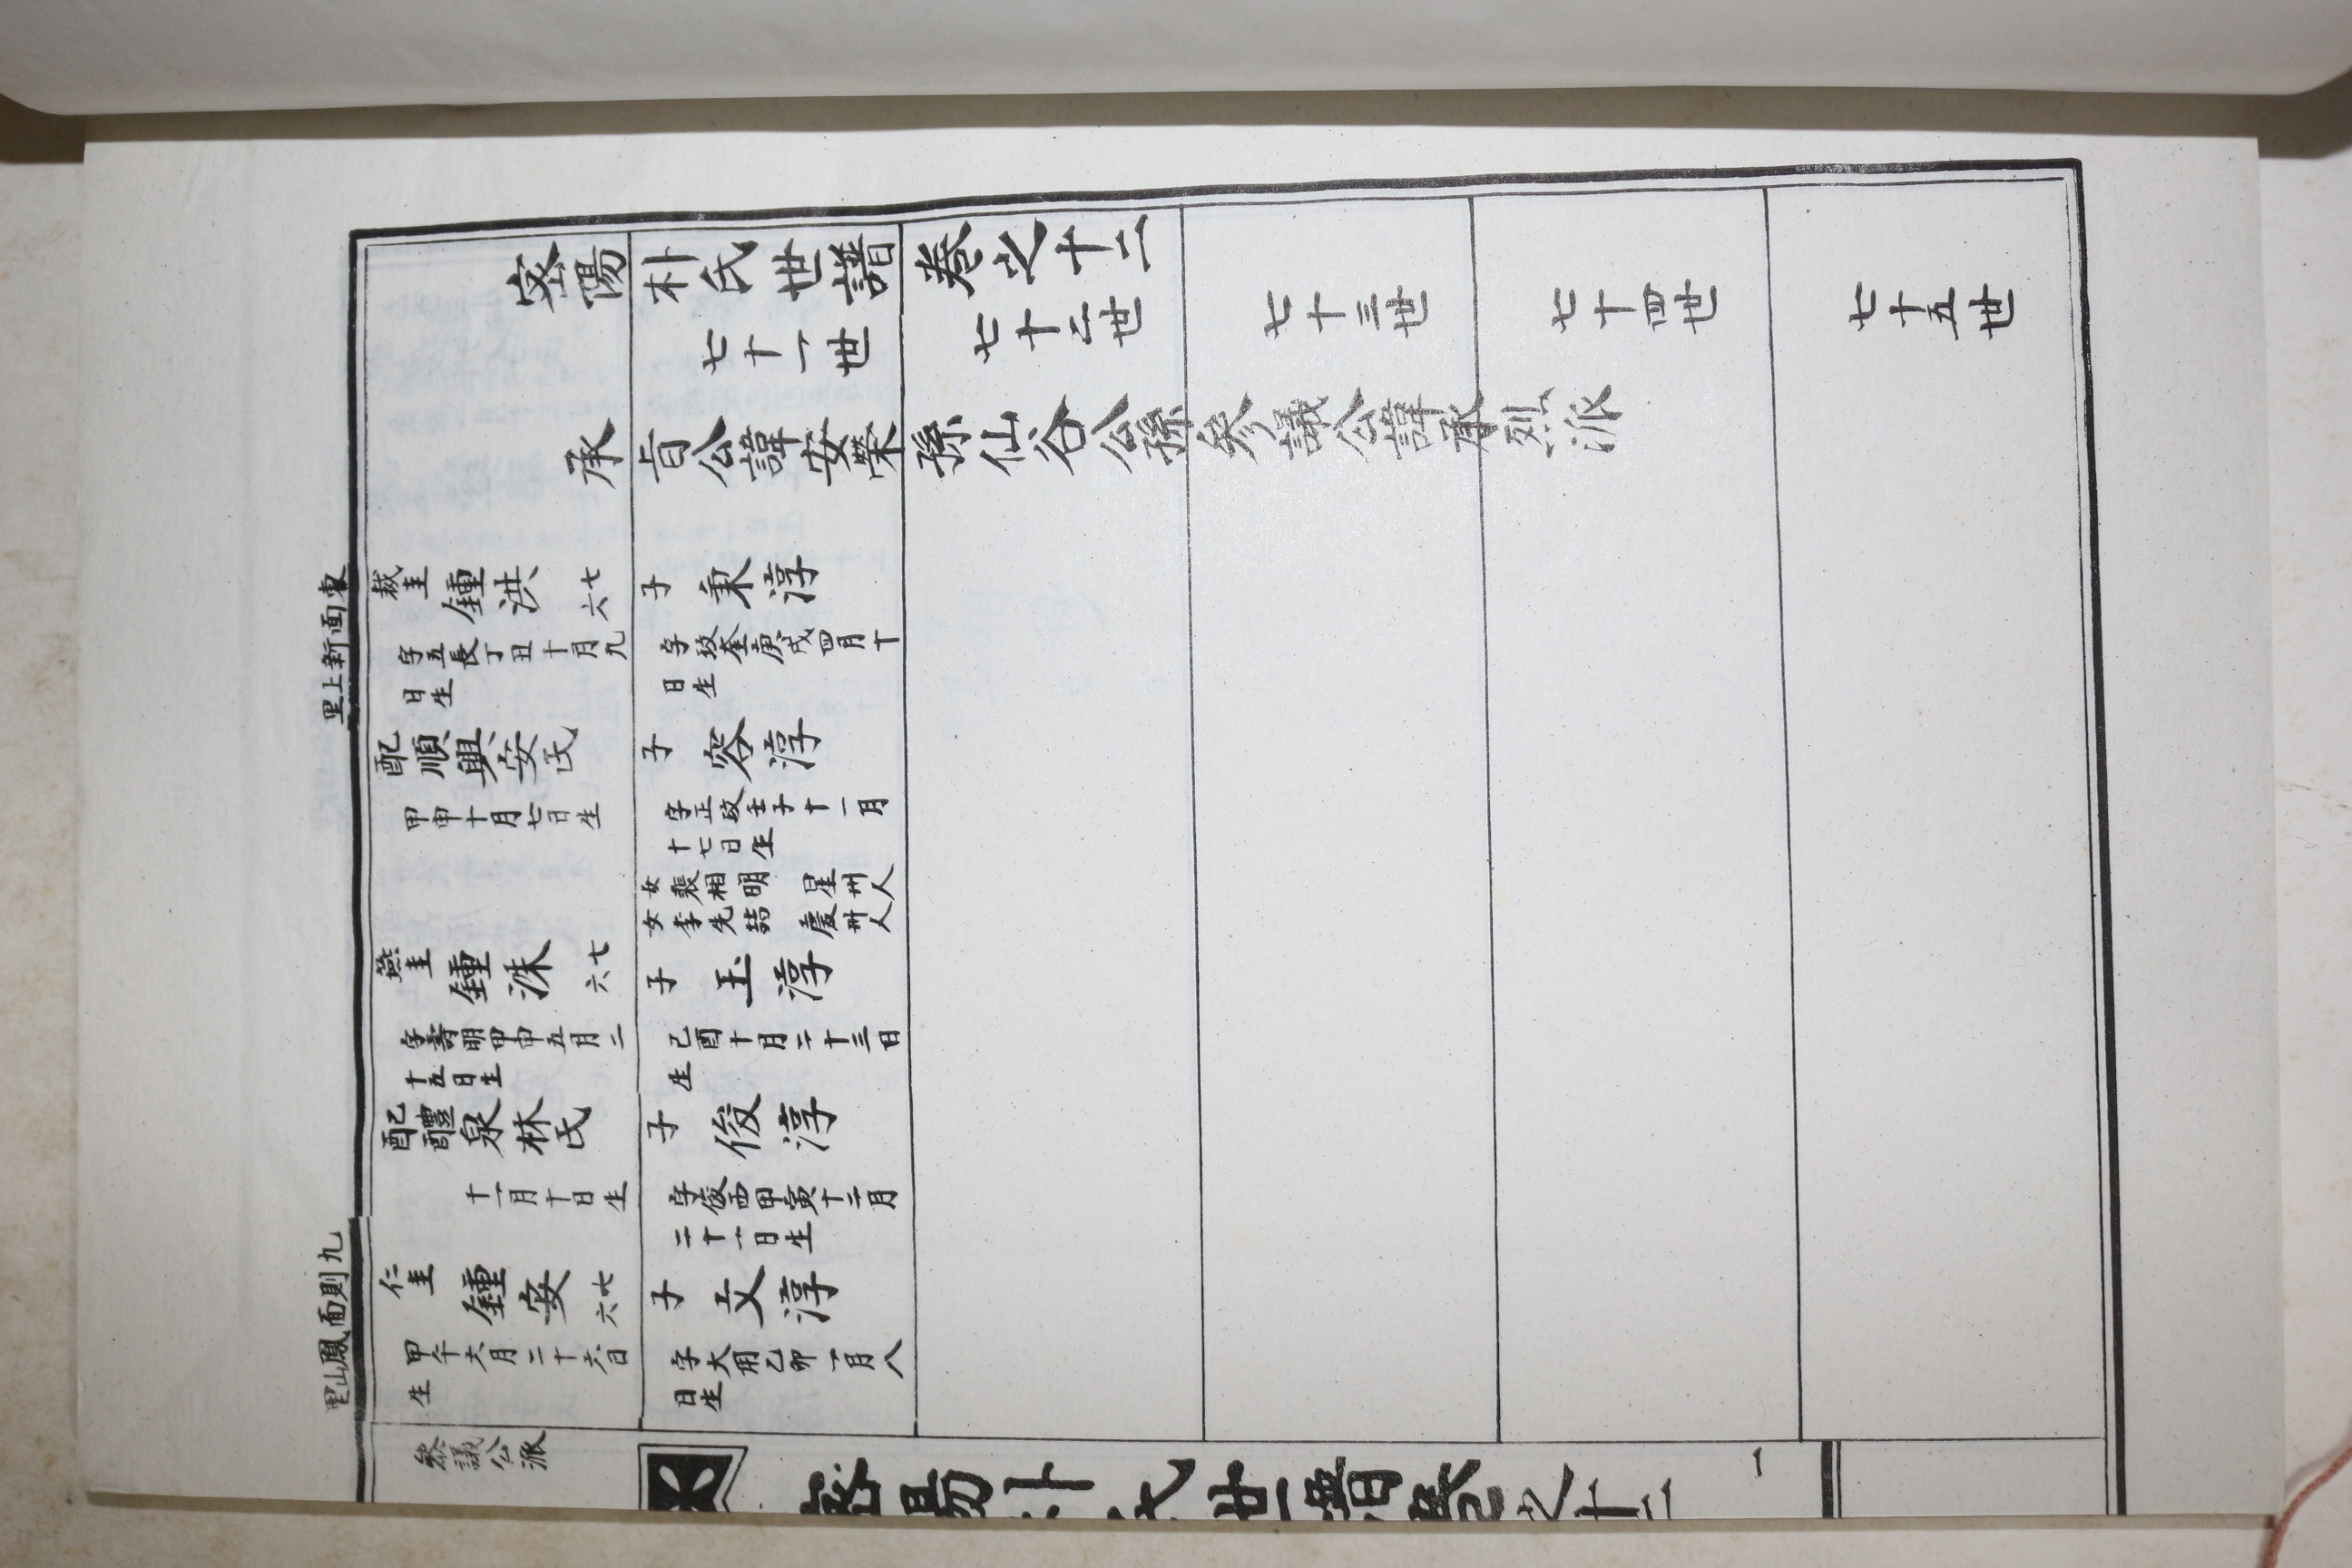 密陽朴氏世譜卷之十二
七十一世
七十二世
七十三世
七十四世
七十五世
承旨公諱安榮孫仙谷公孫參議公諱承烈派
東面新上里
裁圭 鍾洪 七六
字五長丁丑十月九
日生
配順興安氏
甲申十月七日生
燕圭 鍾洙 七六
字壽明甲申五月二
十五日生
配醴泉林氏
十一月十日生
九則面鳳山里
仁圭 鍾安 七六
甲午六月二十六日
生
子 秉淳
字玟奎庚戌四月十
日生
子 容淳
字正玟壬子十一月
十七日生
女裴相明 星州人
女李先喆 慶州人
子 玉淳
己酉十月二十三日
生
子 俊淳
字俊西甲寅十二月
二十一日生
子 文淳
字大用乙卯一月八
日生
參議公派
密陽朴氏世譜卷之十二
一